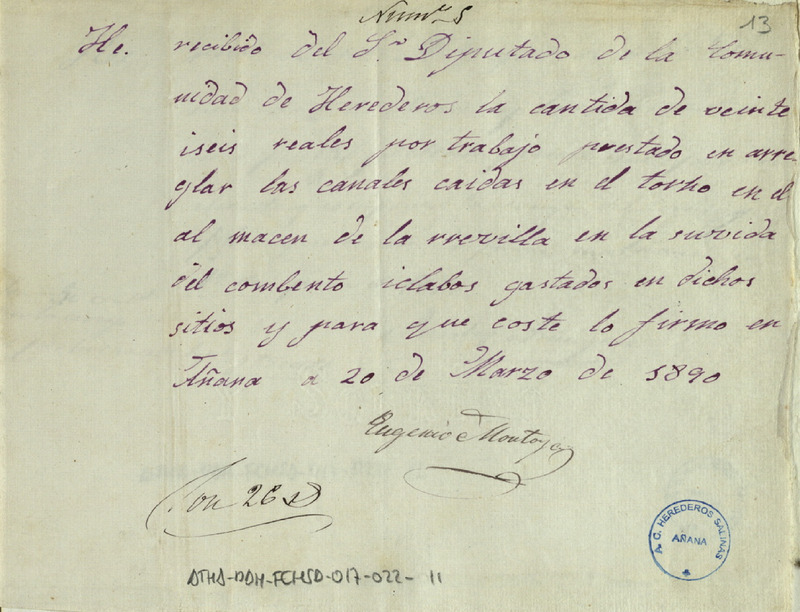 Numº 5
13
He. recibido del Sr Diputado de la Comu-
nidad de Herederos la cantida de veinte
iseis reales por trabajo prestado en arre-
glar las canales caidas en el torno en el
al macen de la rrevilla en la suvida
del combento iclabos gastados en dichos
sitios y para que coste lo firmo en
Añana a 20 de Marzo de 1890
Eugenio Montoya
Son 26 r
A. C. HEREDEROS SALINAS
AÑANA
ATHA-DAH-FCHSD-017-022-11